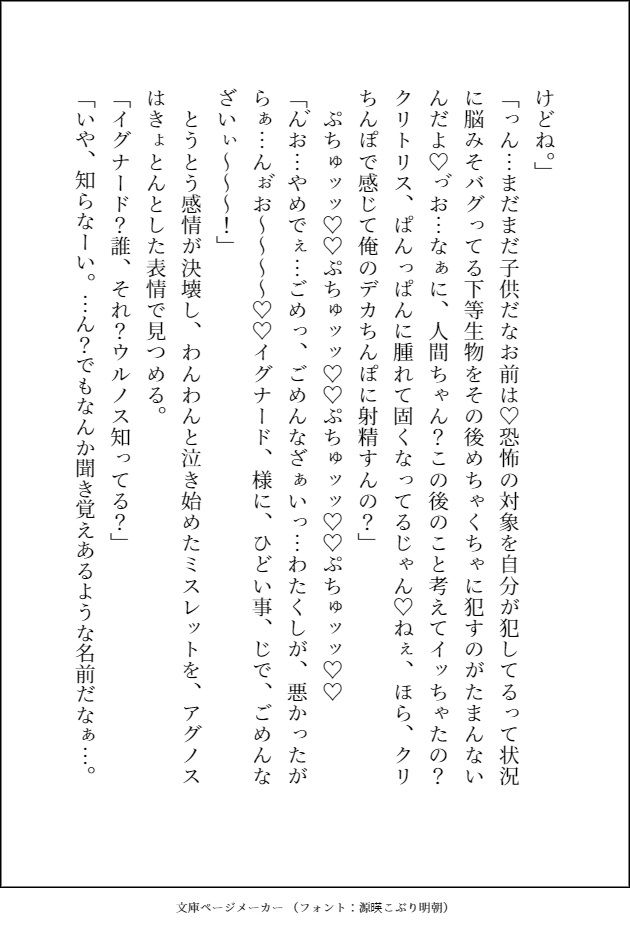 けどね。」
「っん…まだまだ子供だなお前は♡恐怖の対象を自分が犯してるって状況
に脳みそバグってる下等生物をその後めちゃくちゃに犯すのがたまんない
んだよ♡っ゙お…なぁに、人間ちゃん？この後のこと考えてイッちゃたの？
クリトリス、ぱんっぱんに腫れて固くなってるじゃん♡ねぇ、ほら、クリ
ちんぽで感じて俺のデカちんぽに射精すんの？」
ぷちゅッッ♡♡ぷちゅッッ♡♡ぷちゅッッ♡♡ぷちゅッッ♡♡
「ん゙お…やめでぇ…ごめっ、ごめんなざぁいっ…わたくしが、悪かったが
らぁ…んぉ゙お～～～～♡♡イグナード、様に、ひどい事、じで、ごめんな
ざいぃ～～～！」
とうとう感情が決壊し、わんわんと泣き始めたミスレットを、アグノス
はきょとんとした表情で見つめる。
「イグナード？誰、それ？ウルノス知ってる？」
「いや、知らなーい。…ん？でもなんか聞き覚えあるような名前だなぁ…。
文庫ページメーカー （フォント：源暎こぶり明朝）